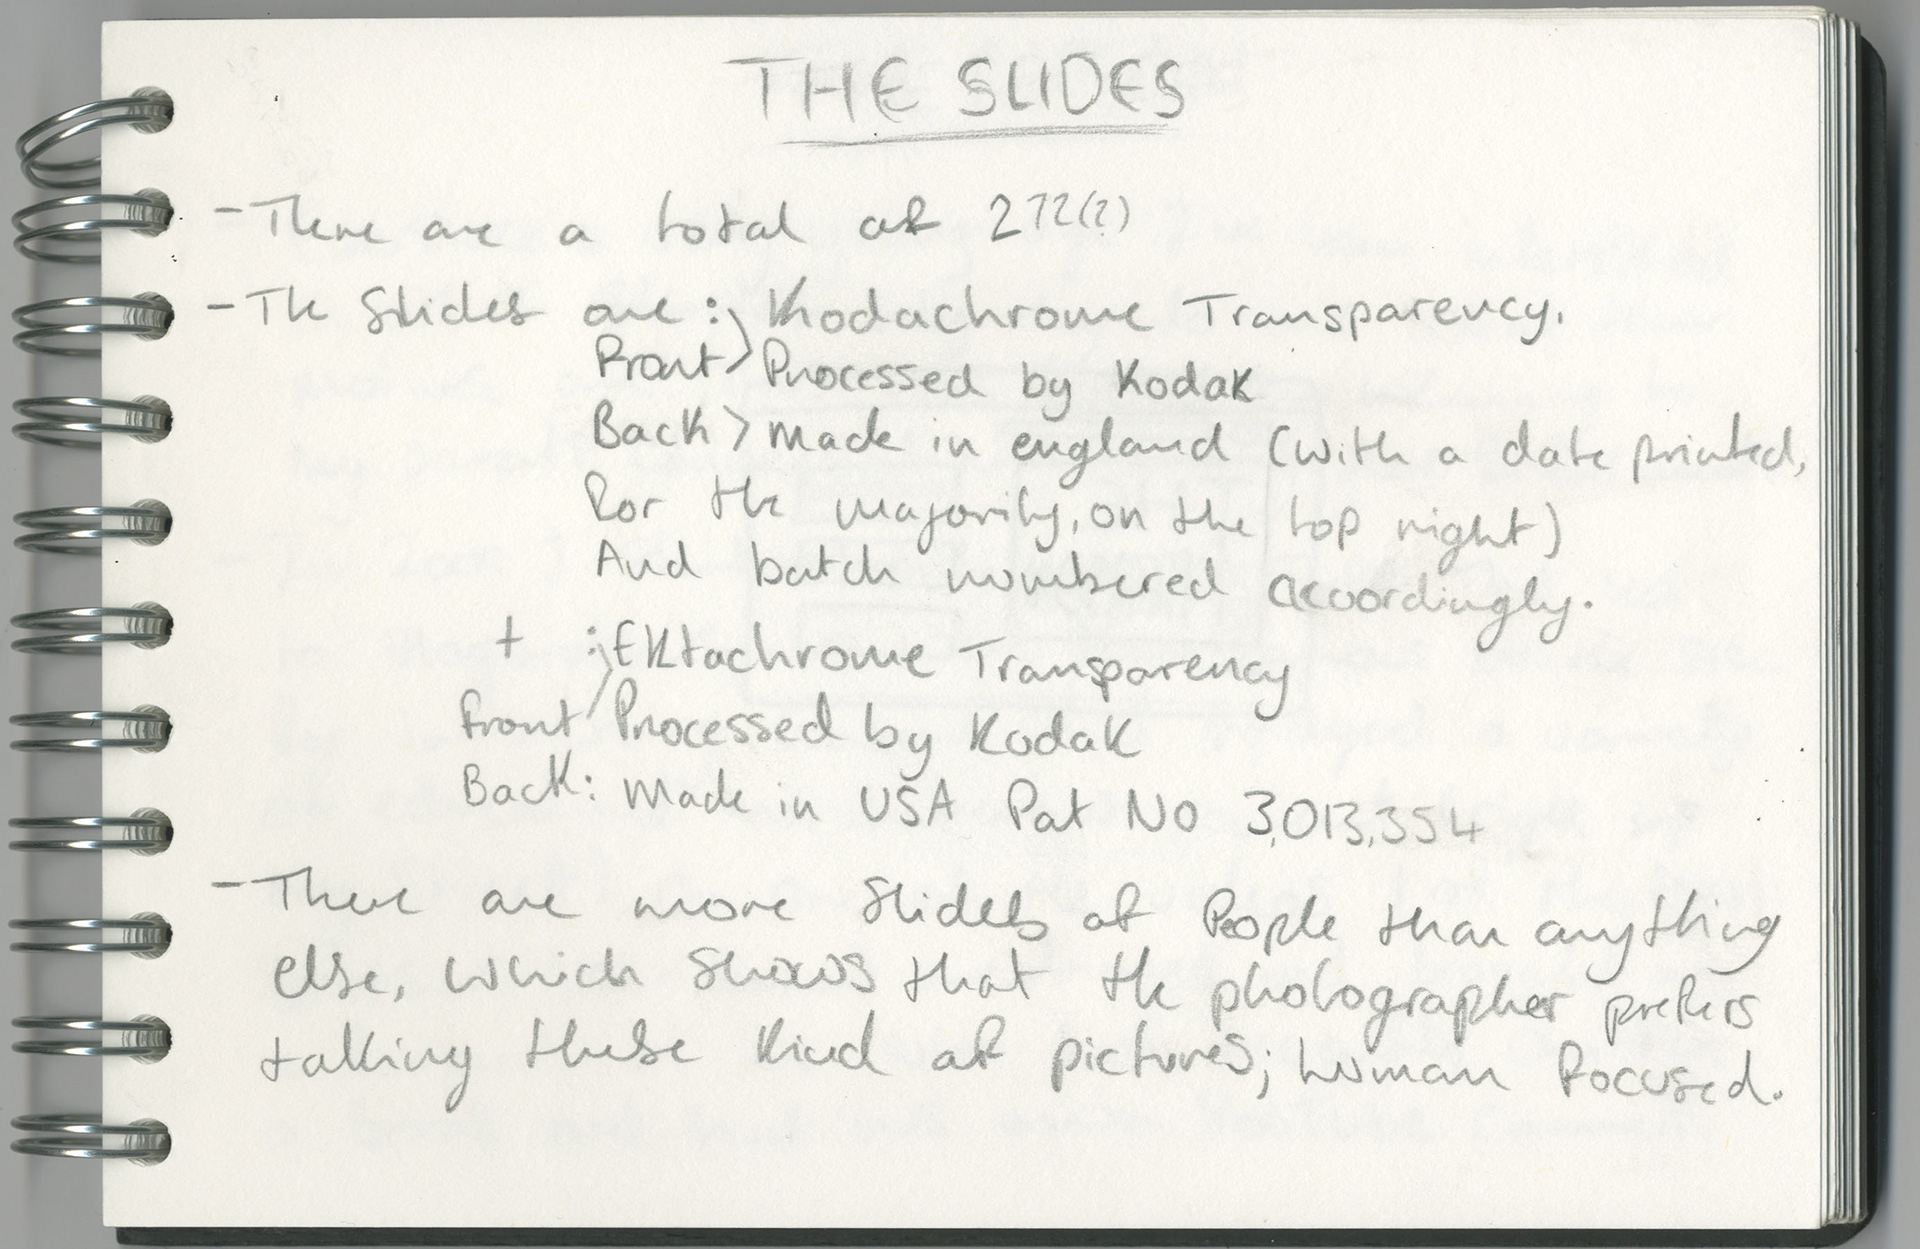 THE SLIDES
- There are a total of 272(?)
- The Slides are : Kodachrome Transparency.
Front > Processed by Kodak
Back > made in england (with a date printed,
for the majority, on the top right)
And batch numbered accordingly.
+ : EKtachrome Transparency
Front Processed by Kodak
Back: Made in USA Pat No 3,013,354
- There are more slides of People than anything
else, which shows that the photographer prefers
talking these kind of pictures; human focused.